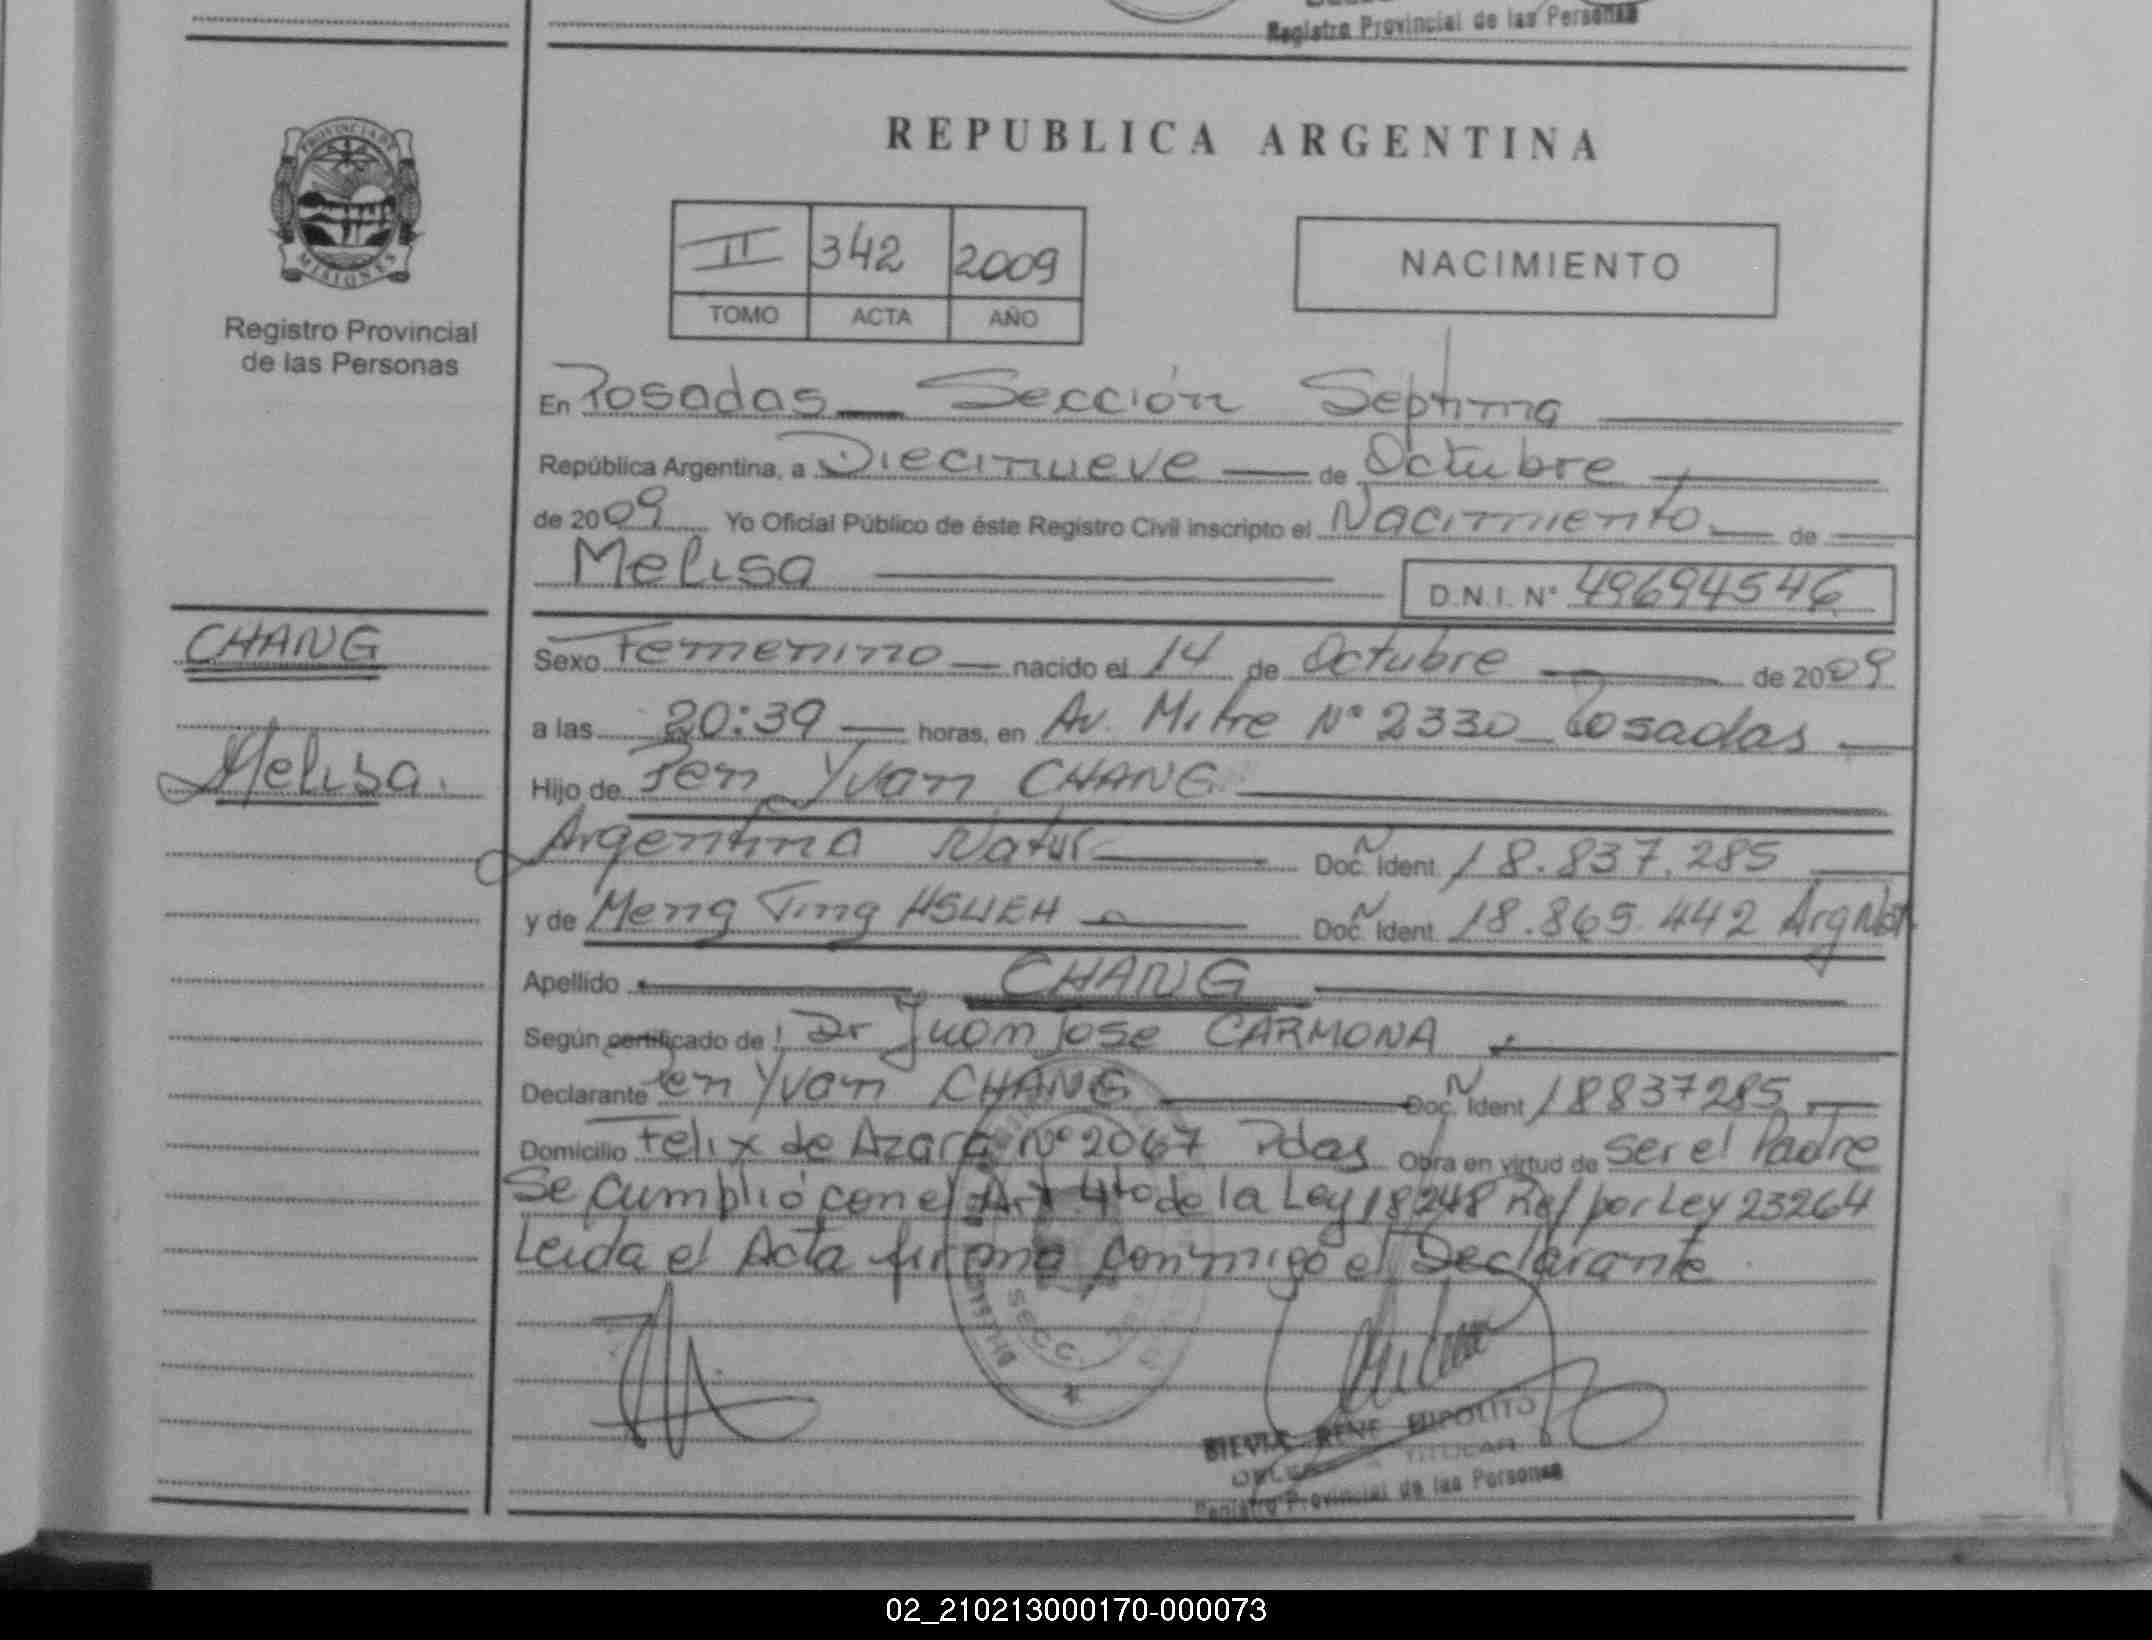 Registro Provincial de las Personas
REPUBLICA ARGENTINA
PROVINCIA DE
MISIONES
Registro Provincial
de las Personas
II 342 2009
TOMO ACTA AÑO
NACIMIENTO
En Posadas Sección Septima
República Argentina, a Diecinueve de Octubre
de 2009 Yo Oficial Público de éste Registro Civil inscripto el Nacimiento de
Melisa D.N.I. N° 49694546
CHANG
Melisa.
Sexo Femenino nacido el 14 de Octubre de 2009
a las 20:39 horas, en Av. Mitre N° 2330 Posadas
Hijo de Pen Yvan CHANG
Argentina Natur Doc. Ident. N 18.837.285
y de Meng Ting HSUEH Doc. Ident. N 18.865.442 Arg Nat
Apellido CHANG
Según certificado de Dr Juan Jose CARMONA
Declarante Pen Yvan CHANG Doc. Ident N 18837285
Domicilio Felix de Azara N° 2067 Pdas Obra en virtud de ser el Padre
Se cumplió con el Art 4to de la Ley 18248 Ref por Ley 23264
Leida el Acta firma conmigo el Declarante
SECC.
RENE HIPOLITO
TITULAR
Registro Provincial de las Personas
02_210213000170-000073